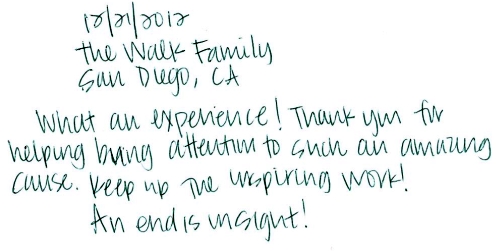 12/21/2012
the Walk Family
San Diego, CA
What an experience! Thank you for
helping bring attention to such an amazing
cause. Keep up the inspiring work!
An end is insight!